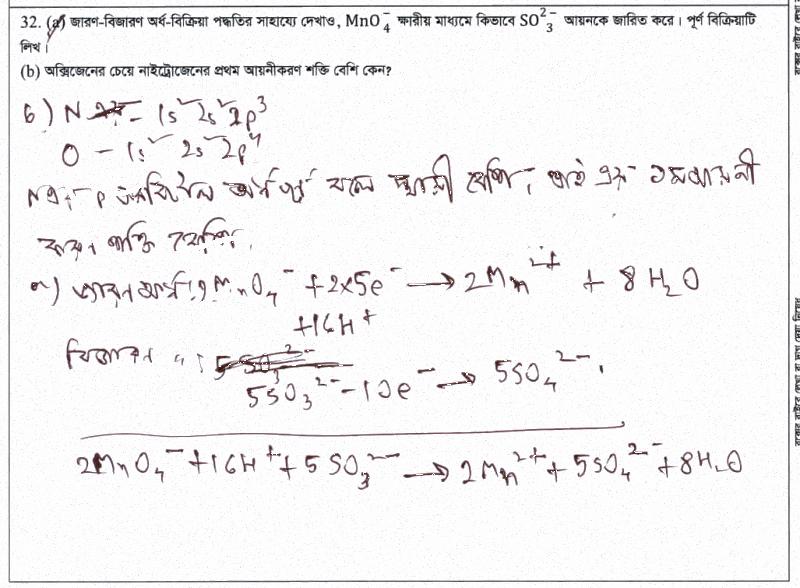 32. (a) জারণ-বিজারণ অর্ধ-বিক্রিয়া পদ্ধতির সাহায্যে দেখাও, MnO₄⁻ ক্ষারীয় মাধ্যমে কিভাবে SO₃²⁻ আয়নকে জারিত করে। পূর্ণ বিক্রিয়াটি
লিখ।
(b) অক্সিজেনের চেয়ে নাইট্রোজেনের প্রথম আয়নীকরণ শক্তি বেশি কেন?
b) N – 1s² 2s² 2p³
O – 1s² 2s² 2p⁴
N এর p অরবিটাল অর্ধপূর্ণ বলে স্থায়ী বেশি, তাই এর ১ম আয়নী
করণ শক্তি বেশি।
a) জারণ অর্ধ: 2MnO₄⁻ + 2x5e⁻ → 2Mn²⁺ + 8H₂O
+16H⁺
বিজারণ " :
5SO₃²⁻ – 10e⁻ → 5SO₄²⁻
2MnO₄⁻ + 16H⁺ + 5SO₃²⁻ → 2Mn²⁺ + 5SO₄²⁻ + 8H₂O